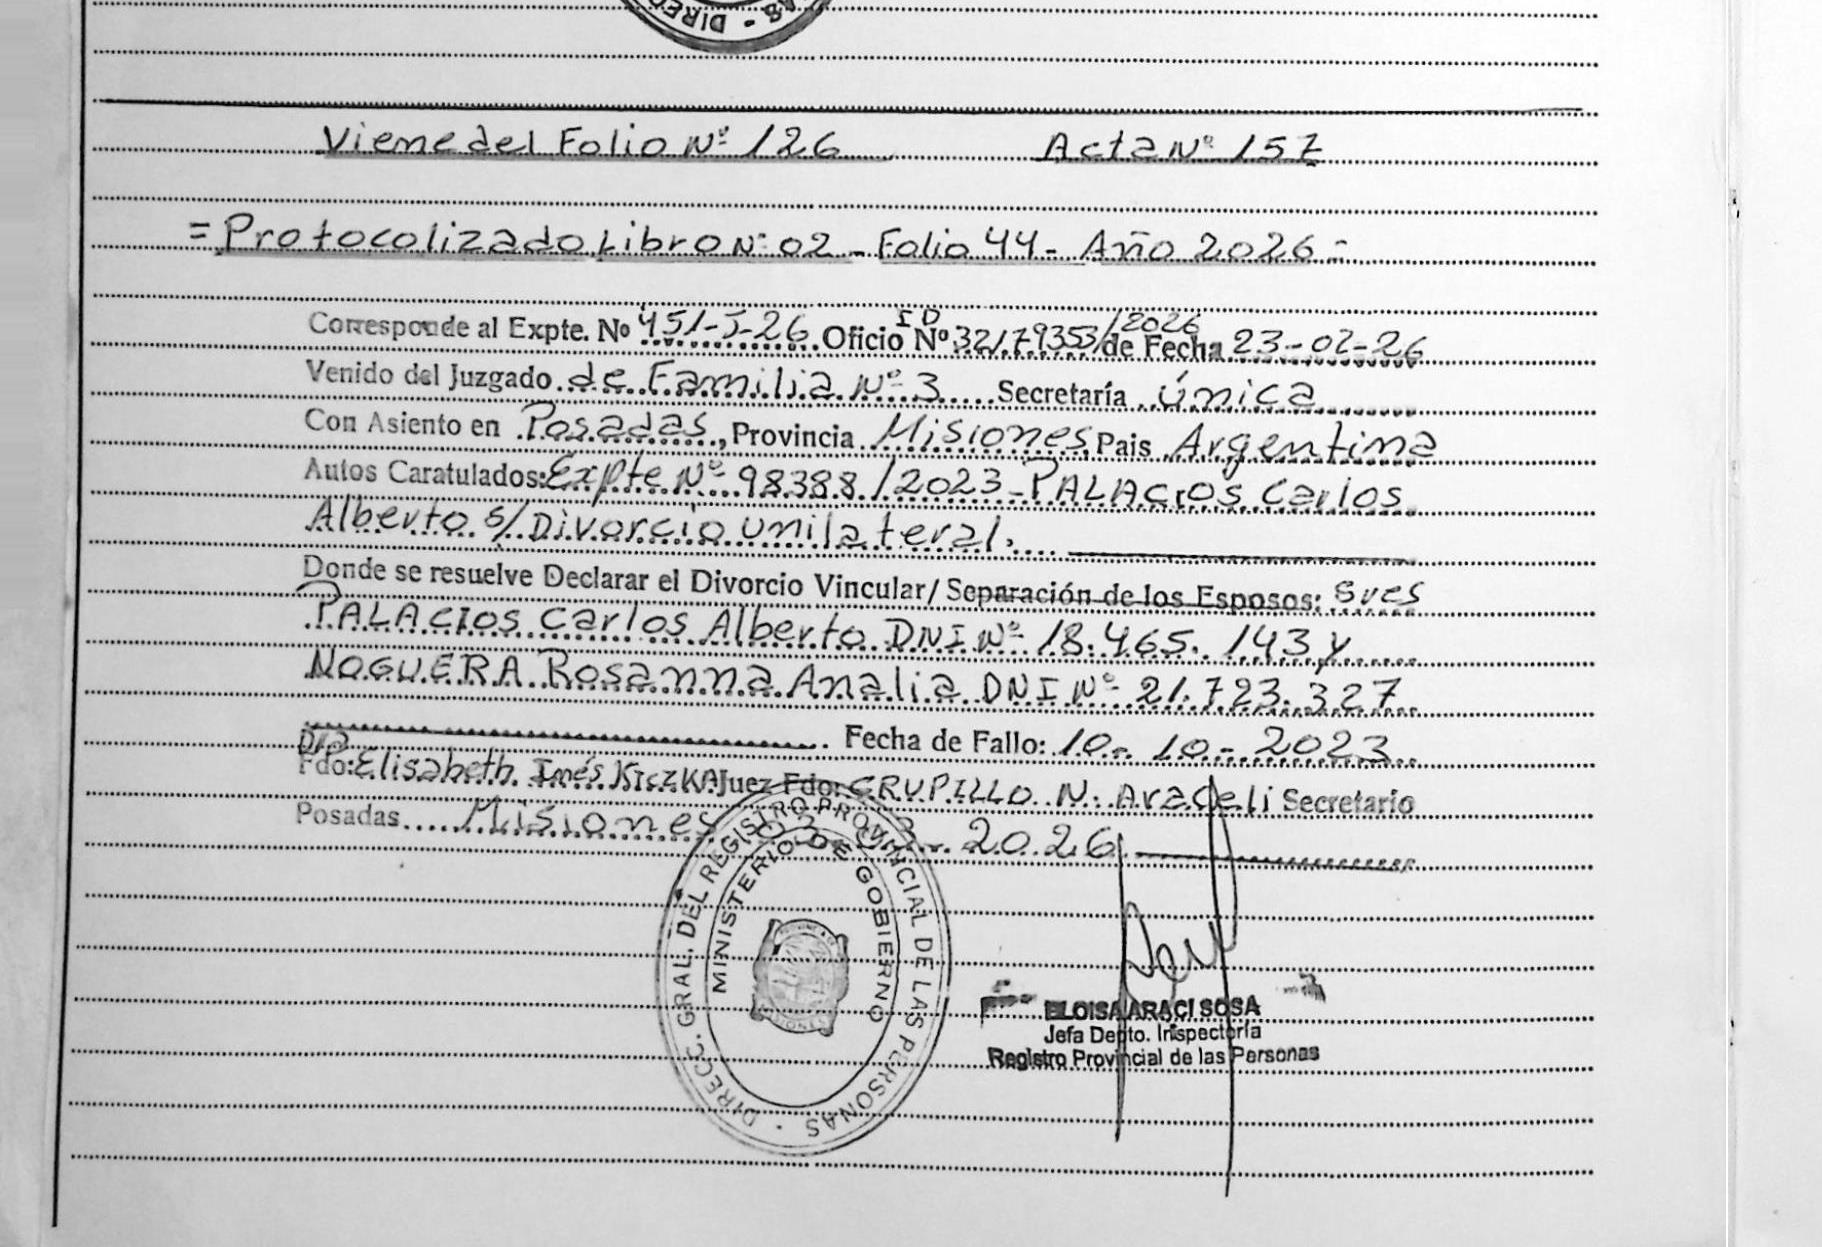 Viene del Folio Nº 126 Acta Nº 157
= Protocolizado Libro Nº 02 - Folio 44 - Año 2026 =
Corresponde al Expte. Nº 451-J-26 Oficio ID Nº 32179353/2026 de Fecha 23-02-26
Venido del Juzgado de Familia Nº 3 Secretaría Única
Con Asiento en Posadas, Provincia Misiones Pais Argentina
Autos Caratulados: Expte Nº 98388/2023 - PALACIOS Carlos
Alberto s/ Divorcio unilateral.
Donde se resuelve Declarar el Divorcio Vincular/ Separación de los Esposos: Sres
PALACIOS Carlos Alberto DNI Nº 18.465.143 y
NOGUERA Rosanna Analia DNI Nº 21.723.327
Fecha de Fallo: 10-10-2023
Dra
Fdo: Elisabeth Inés KICZKA Juez Fdo: CRUPILLO N. Araceli Secretario
Posadas Misiones 03 2026
DIRECC. GRAL. DEL REGISTRO PROVINCIAL DE LAS PERSONAS
MINISTERIO DE GOBIERNO
ELOISA ARACI SOSA
Jefa Depto. Inspectoría
Registro Provincial de las Personas